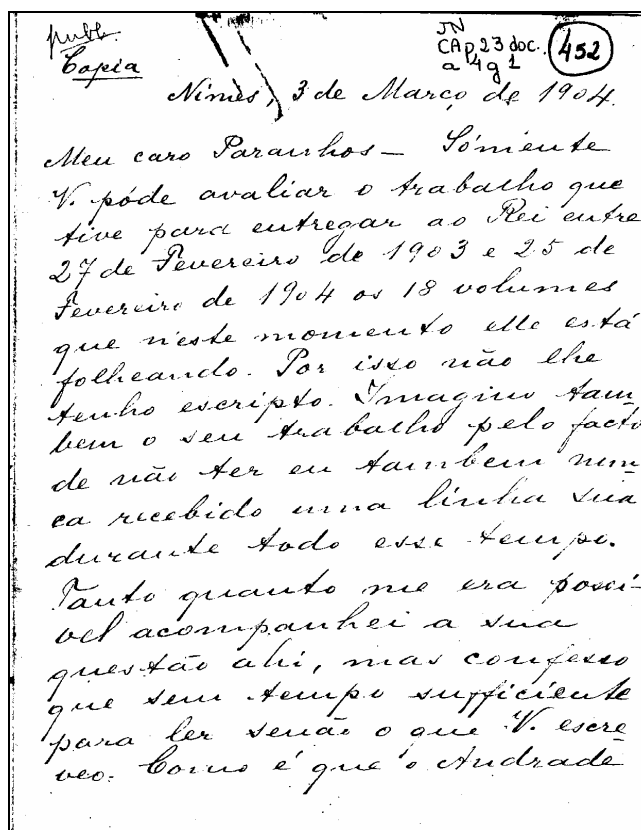 publ.
Copia
JN
CAp 23 doc.
a 4g 1
452
Nimes, 3 de Março de 1904.
Meu caro Paranhos – Sómente
V. póde avaliar o trabalho que
tive para entregar ao Rei entre
27 de Fevereiro de 1903 e 25 de
Fevereiro de 1904 os 18 volumes
que n'este momento elle está
folheando. Por isso não lhe
tenho escripto. Imagino tam-
bem o seu trabalho pelo facto
de não ter eu tambem nun-
ca recebido uma linha sua
durante todo esse tempo.
Tanto quanto me era possi-
vel acompanhei a sua
questão ahi, mas confesso
que sem tempo sufficiente
para ler senão o que V. escre-
veo. Como é que o Andrade